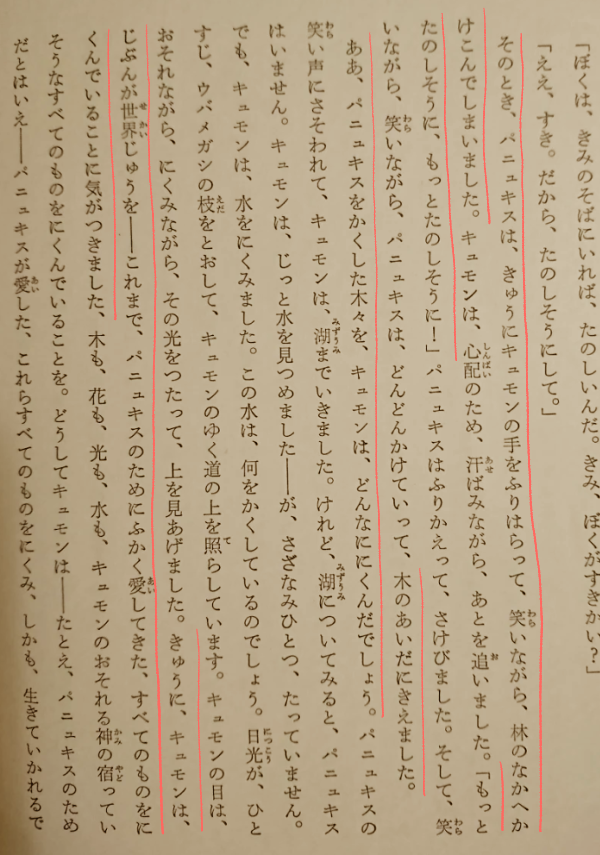 「ぼくは、きみのそばにいれば、たのしいんだ。きみ、ぼくがすきかい?」
「ええ、すき。だから、たのしそうにして。」
そのとき、パニュキスは、きゅうにキュモンの手をふりはらって、笑いながら、林のなかへか
けこんでしまいました。キュモンは、心配のため、汗ばみながら、あとを追いました。「もっと
たのしそうに、もっとたのしそうに!」パニュキスはふりかえって、さけびました。そして、笑
いながら、笑いながら、パニュキスは、どんどんかけていって、木のあいだにきえました。
ああ、パニュキスをかくした木々を、キュモンは、どんなににくんだでしょう。パニュキスの
笑い声にさそわれて、キュモンは、湖までいきました。けれど、湖についてみると、パニュキス
はいません。キュモンは、じっと水を見つめました――が、さざなみひとつ、たっていません。
でも、キュモンは、水をにくみました。この水は、何をかくしているのでしょう。日光が、ひと
すじ、ウバメガシの枝をとおして、キュモンのゆく道の上を照らしています。キュモンの目は、
おそれながら、にくみながら、その光をつたって、上を見あげました。きゅうに、キュモンは、
じぶんが世界じゅうを――これまで、パニュキスのためにふかく愛してきた、すべてのものをに
くんでいることに気がつきました、木も、花も、光も、水も、キュモンのおそれる神の宿ってい
そうなすべてのものをにくんでいることを。どうしてキュモンは――たとえ、パニュキスのため
だとはいえ――パニュキスが愛した、これらすべてのものをにくみ、しかも、生きていかれるで